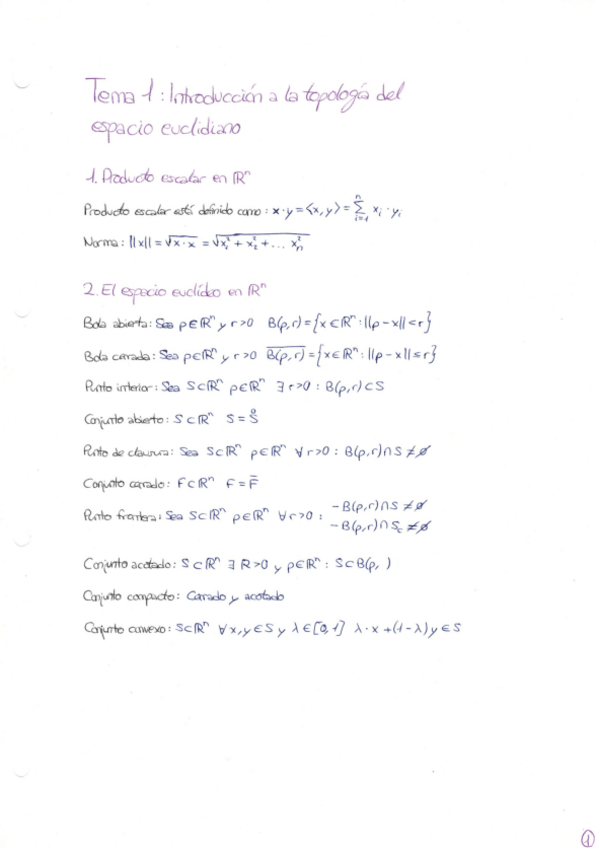 Tema 1: Introducción a la topología del
espacio euclidiano
1. Producto escalar en ℝⁿ
Producto escalar está definido como: x·y = ⟨x,y⟩ = Σᵢ₌₁ⁿ xᵢ · yᵢ
Norma: ||x|| = √(x·x) = √(x₁² + x₂² + ... xₙ²)
2. El espacio euclídeo en ℝⁿ
Bola abierta: Sea p∈ℝⁿ y r>0 B(p,r) = {x∈ℝⁿ : ||p-x|| < r}
Bola cerrada: Sea p∈ℝⁿ y r>0 B̅(̅p̅,̅r̅)̅ = {x∈ℝⁿ : ||p-x|| ≤ r}
Punto interior: Sea S⊂ℝⁿ p∈ℝⁿ ∃ r>0 : B(p,r)⊂S
Conjunto abierto: S⊂ℝⁿ S = S̊
Punto de clausura: Sea S⊂ℝⁿ p∈ℝⁿ ∀r>0 : B(p,r)∩S ≠ ∅
Conjunto cerrado: F⊂ℝⁿ F = F̄
Punto frontera: Sea S⊂ℝⁿ p∈ℝⁿ ∀r>0 : -B(p,r)∩S ≠ ∅
-B(p,r)∩S_c ≠ ∅
Conjunto acotado: S⊂ℝⁿ ∃ R>0 y p∈ℝⁿ : S⊂B(p, )
Conjunto compacto: Cerrado y acotado
Conjunto convexo: S⊂ℝⁿ ∀x,y∈S y λ∈[0,1] λ·x+(1-λ)y∈S
1